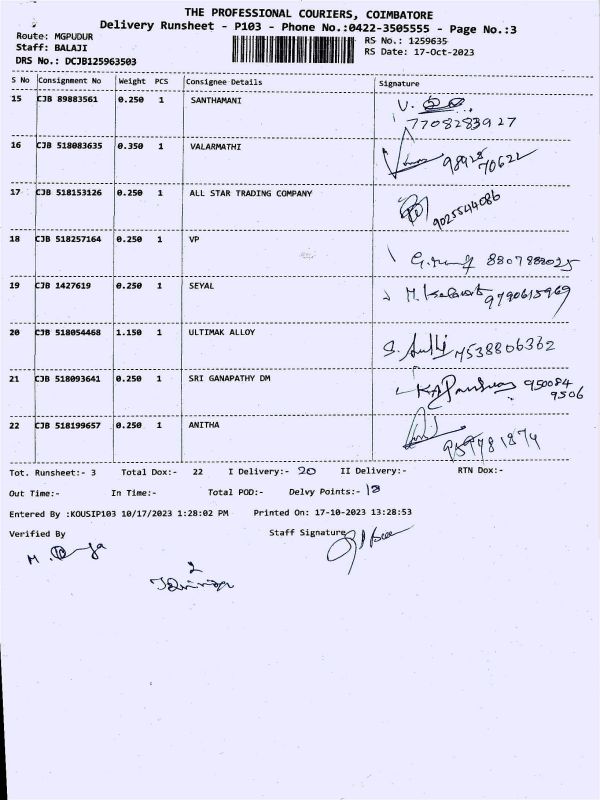 THE PROFESSIONAL COURIERS, COIMBATORE
Delivery Runsheet - P103 - Phone No.:0422-3505555 - Page No.:3
Route: MGPUDUR
RS No.: 1259635
Staff: BALAJI
RS Date: 17-Oct-2023
DRS No.: DCJB125963503
S No Consignment No Weight PCS Consignee Details Signature
15 CJB 89883561 0.250 1 SANTHAMANI V.
7708283927
16 CJB 518083635 0.350 1 VALARMATHI
17 CJB 518153126 0.250 1 ALL STAR TRADING COMPANY 9025544086
18 CJB 518257164 0.250 1 VP 8807888025
19 CJB 1427619 0.250 1 SEYAL M. 9790615969
20 CJB 518054468 1.150 1 ULTIMAK ALLOY S. 7538806362
21 CJB 518093641 0.250 1 SRI GANAPATHY DM 950084
9506
22 CJB 518199657 0.250 1 ANITHA
Tot. Runsheet:- 3 Total Dox:- 22 I Delivery:- 20 II Delivery:- RTN Dox:-
Out Time:- In Time:- Total POD:- Delvy Points:- 18
Entered By :KOUSIP103 10/17/2023 1:28:02 PM Printed On: 17-10-2023 13:28:53
Verified By Staff Signature
M.